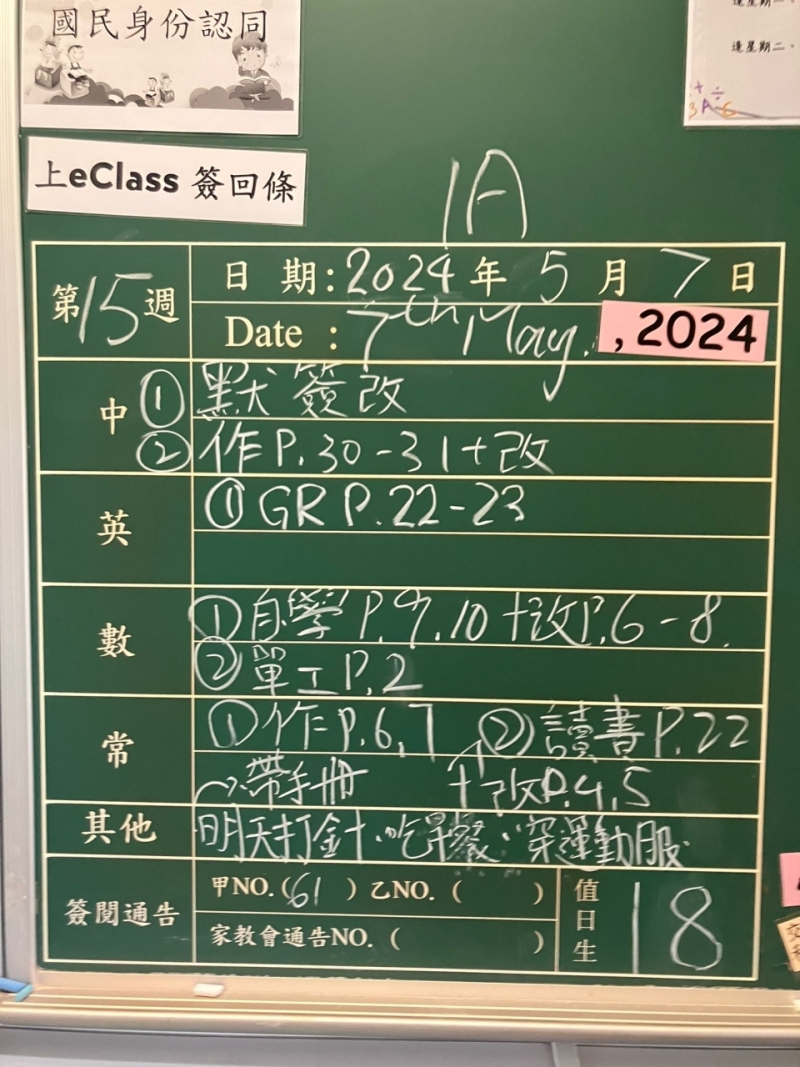 國民身份認同
逢星期一、
逢星期二、
上eClass 簽回條
1A
第15週
日 期:2024年 5 月 7 日
Date : 7th May. , 2024
中 ① 默 簽改
② 作P.30-31+改
英 ① GR P.22-23
數 ① 自學 P.9,10 +改P.6-8.
② 單工 P.2
常 ① 作P.6,7 ② 讀書P.22
帶手冊 +改P.4,5
其他 明天打針、吃早餐、穿運動服
簽閱通告 甲NO.(61) 乙NO.( )
家教會通告NO.( )
值日生 18